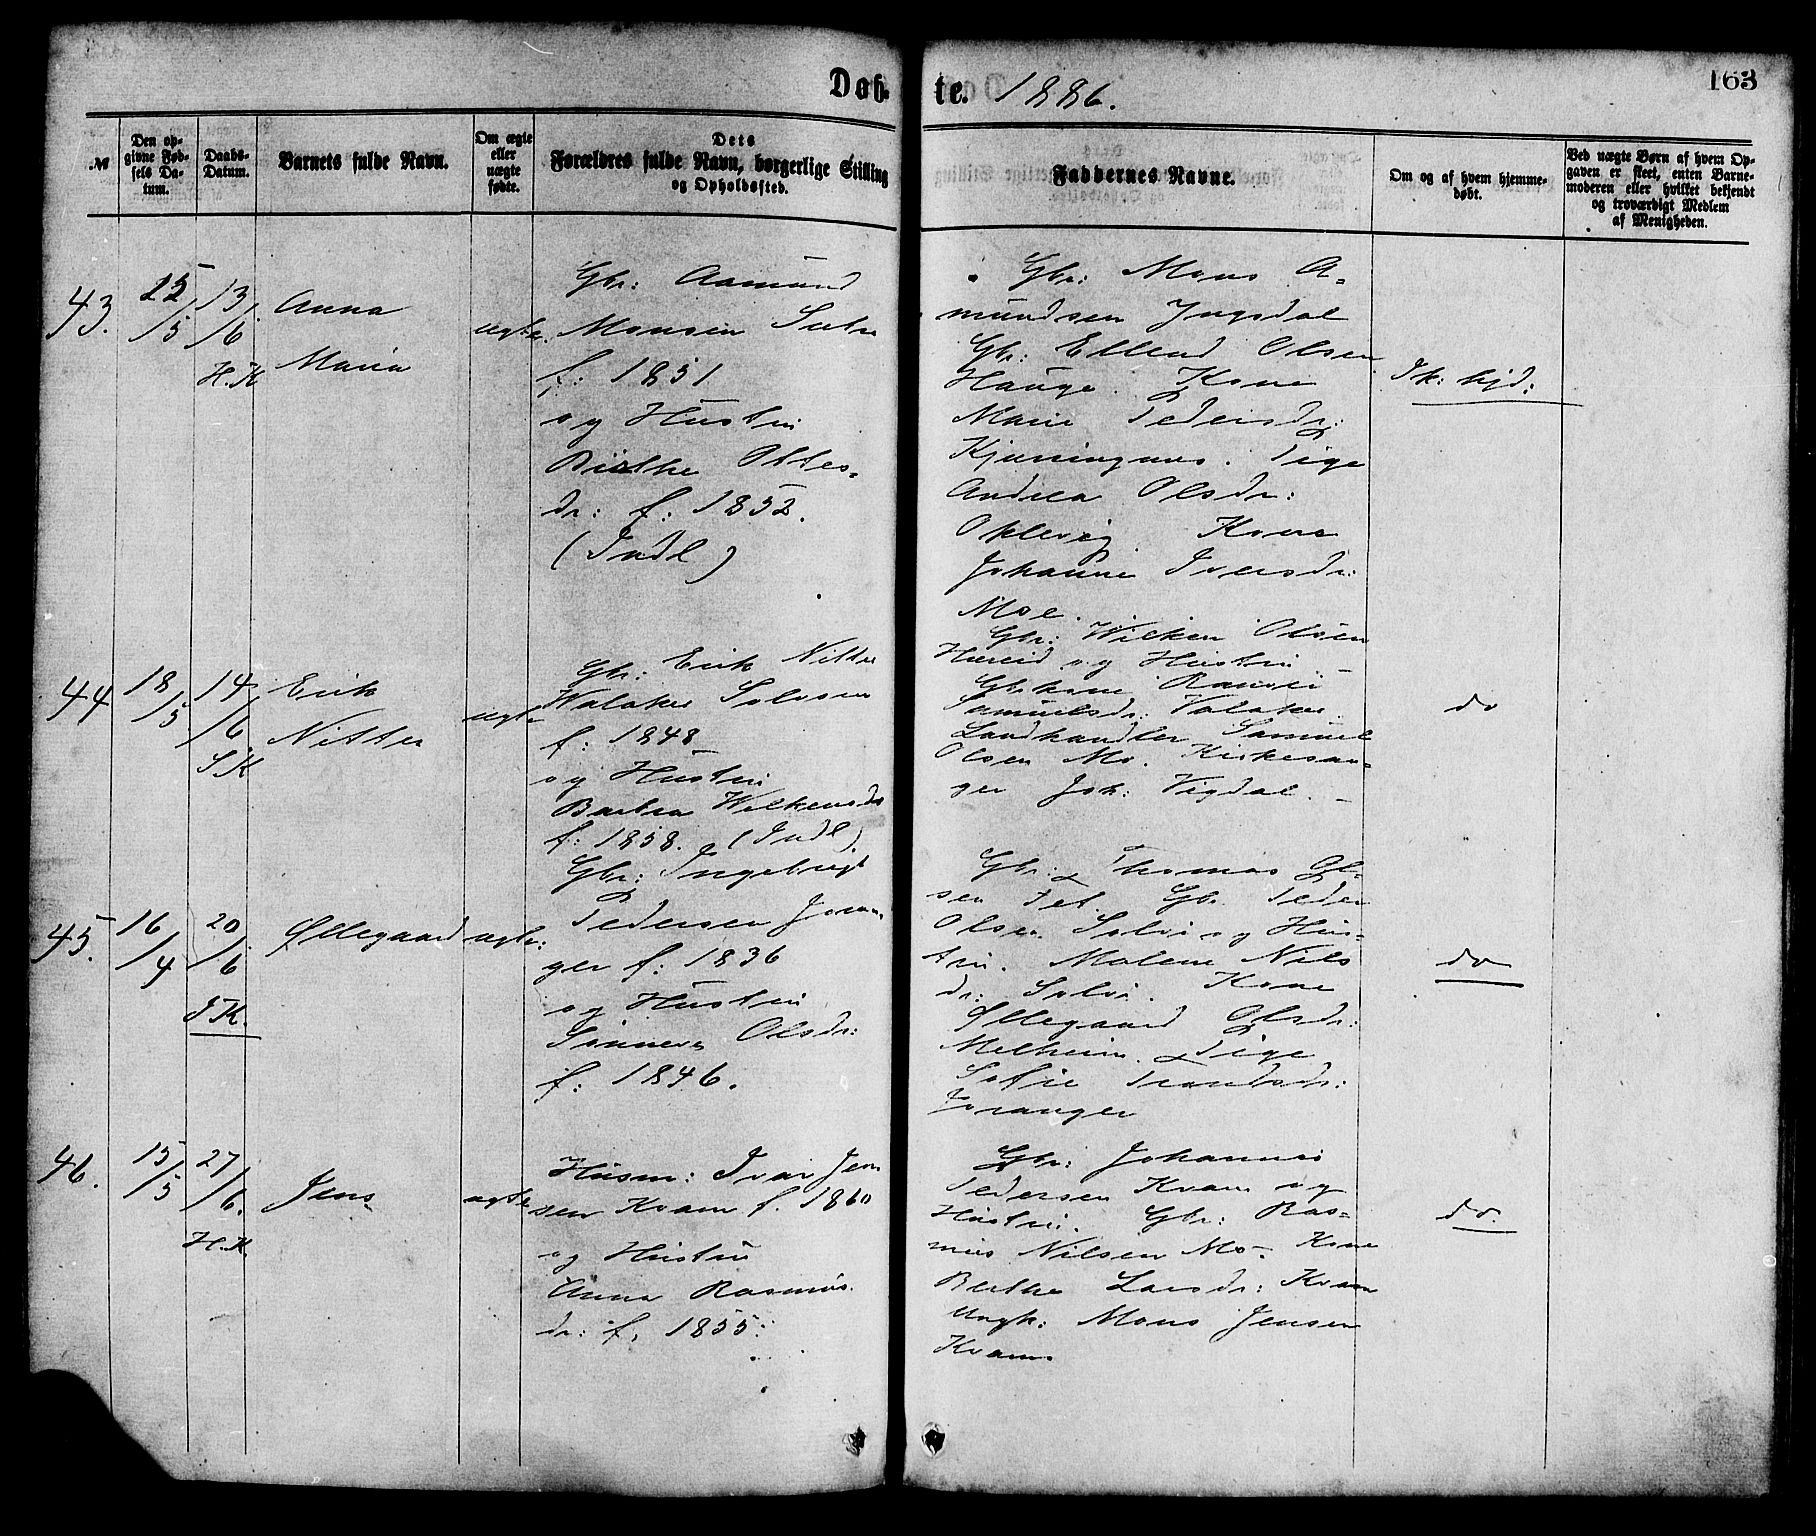 Døb-
te. 1886.
163
№
Den op-
givne Fød-
sels Da-
tum.
Daabs-
Datum.
Barnets fulde Navn.
Om ægte
eller
uægte
fødte.
Dets
Forældres fulde Navn, borgerlige Stilling
og Opholdssted.
Faddernes Navne.
Om og af hvem hjemme-
døbt.
Ved uægte Børn af hvem Op-
gaven er skeet, enten Barne-
moderen eller hvilket bekjendt
og troværdigt Medlem
af Menigheden.
43.
15/5
13/6.
H.K
Anna
Maria
ægte.
Gbr: Aamund
Monsen
f: 1851
og Hustru
Birthe Ottes-
dr: f: 1852.
(Indl)
Gbr: Mons A-
mundsen Yngsdal
Gbr: Ellend Olsen
Hauge. Kone
Marie Pedersdr:
Kjørringnes. Pige
Andrea Olsdr:
Oklevig Kone
Johanne Iversdr:
Moe.
Ik: hjd:
44
18/5
14/6.
S.K
Erik
Nitter
ægte
Gbr: Erik Nitter
Walaker Solvorn
f: 1848
og Hustru
Barbra Wilkensdr
f: 1858. (Indl)
Gbr: Wilken Olsen
Hæreid og Hustru -
Gbrkone Ranvei
Samuelsdr: Valaker.
Landhandler Samuel
Olsen Mo. Kirkesan-
ger Joh: Vigdal. -
do
45.
16/4
20/6
J.K.
Øllegaard
ægte:
Gbr: Ingebrigt
Pedersen Joran-
ger f: 1836
og Hustru
Synneva Olsdr:
f: 1846.
Gbr: Thomas Ol-
sen Fet. Gbr. Peder
Olsen Solvi og Hus-
tru. Malene Nils
dr: Solvi. Kone
Øllegaard Olsdr:
Melheim. Pige
Sofie Trondsdr:
Joranger
do
46.
15/5
27/6.
H.K.
Jens
ægte
Husm: Ivar Jen
sen Kvam f. 1860
og Hustru
Anna Rasmus
dr: f. 1855:
Gbr: Johannes
Pedersen Kvam og
Hustru. Gbr: Ras-
mus Nilsen Mo- Kone
Berthe Larsdr: Kvam
Ungk: Mons Jensen
Kvam.
do.